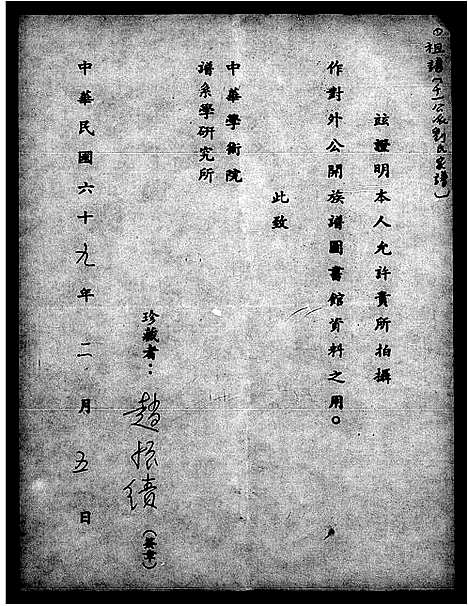 祖譜(千一公派劉氏家譜)
茲證明本人允許貴所拍攝
作對外公開族譜圖書館資料之用。
此致
中華學術院
譜系學研究所
珍藏者:趙振績(簽章)
中華民國六十九年二月五日